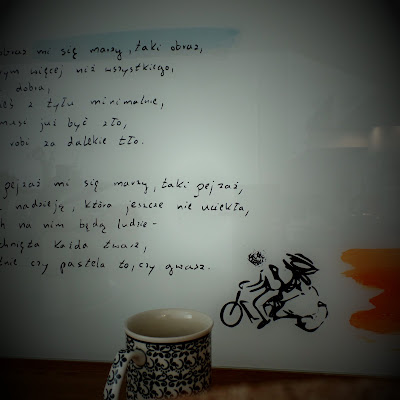 obraz mi się marzy, taki obraz,
rym więcej niż wszystkiego,
dobra,
z tyłu minimalnie,
już być zło,
robi za dalekie tło.
pejzaż mi się marzy, taki pejzaż,
nadzieję, która jeszcze nie uciekła,
h na nim będą ludzie -
chnięta każda twarz,
tnie czy pastela to, czy gwasz.